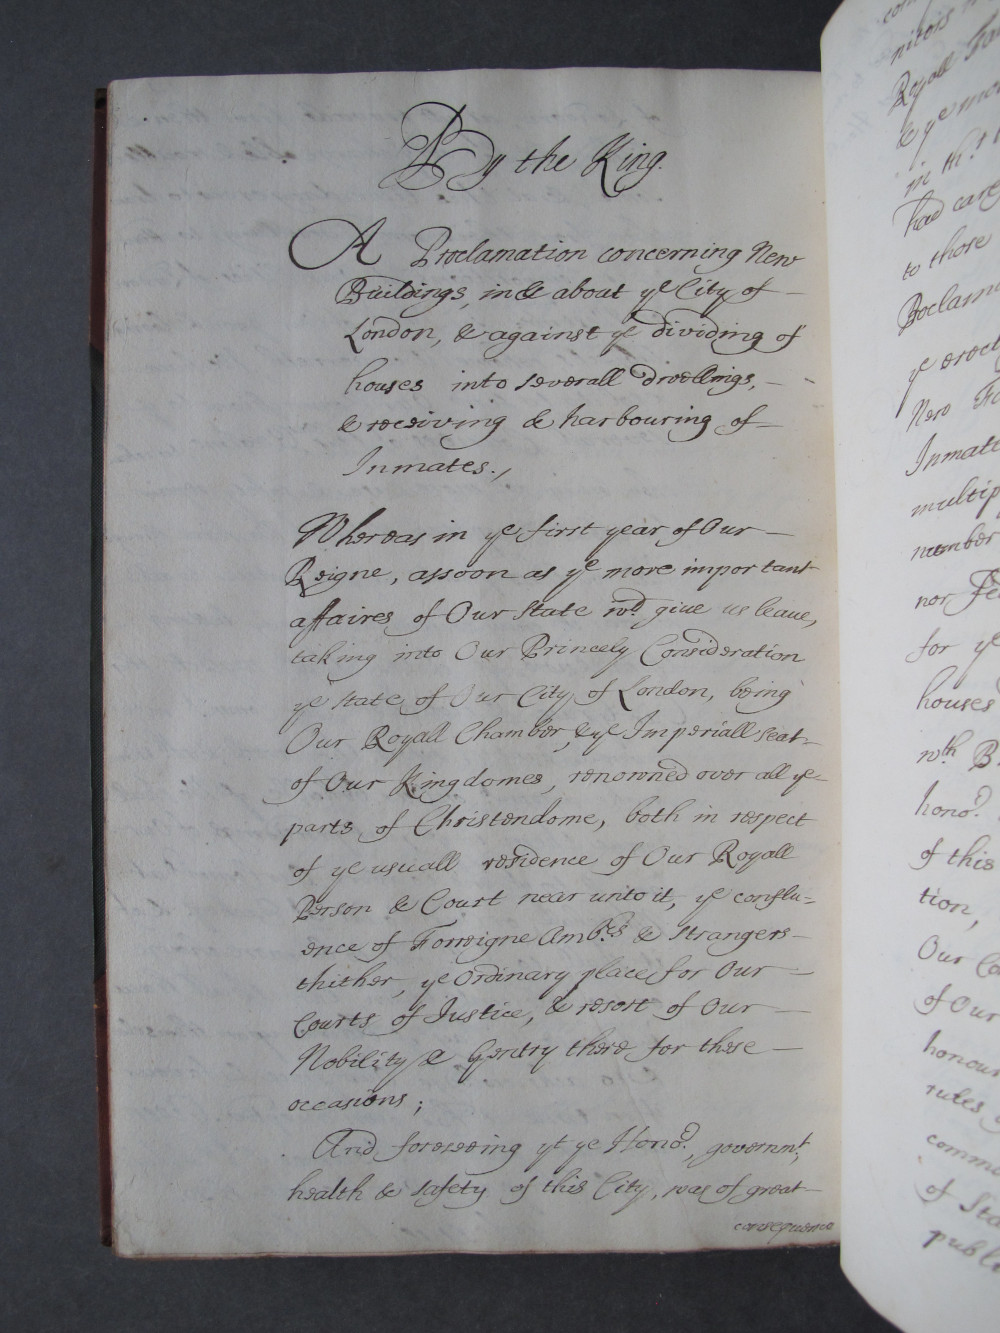 By the King.
A Proclamation concerning New
Buildings, in & about ye City of
London, & against ye dividing of
houses into severall dwellings,
& receiving & harbouring of
Inmates.,
Whereas in ye first year of Our
Reigne, assoon as ye more important
affaires of Our State wd. give us leave,
taking into Our Princely Consideration
ye State of Our City of London, being
Our Royall Chamber, & ye Imperiall seat
of Our Kingdomes, renowned over all ye
parts of Christendome, both in respect
of ye usuall residence of Our Royall
Person & Court near unto it, ye conflu=
ence of Forreigne Ambrs & Strangers
thither, ye Ordinary place for Our
Courts of Justice, & resort of Our
Nobility & Gentry there for these
occasions;
And foreseeing yt ye Honor., governmt,
health & safety of this City, was of great
consequence
nitors
Royall
& ye mo
in tht
had care
to those
Proclam
ye erect
New Fo
Inmat
multip
number
nor
for ye
houses
wth B
honor.
of this
tion,
Our Ca
of Our
honour
rules
comm
of Sta
publi